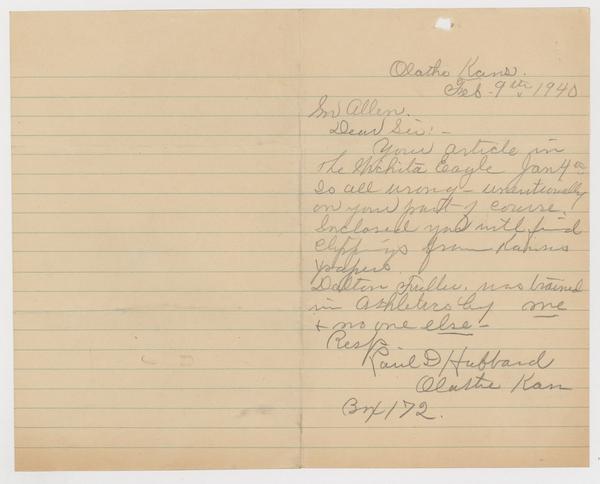 Olathe Kans.
Feb. 9th, 1940
Mr Allen.
Dear Sir:-
Your article in
the Wichita Eagle Jan 4th
Is all wrong - unentionally
on your part of course.
Inclosed you will find
Clippings from Kansas
papers.
Dalton Fuller, was trained
in Athletics by me
& no one else -
Resp
Paul D Hubbard
Olathe Kan
Box 172.